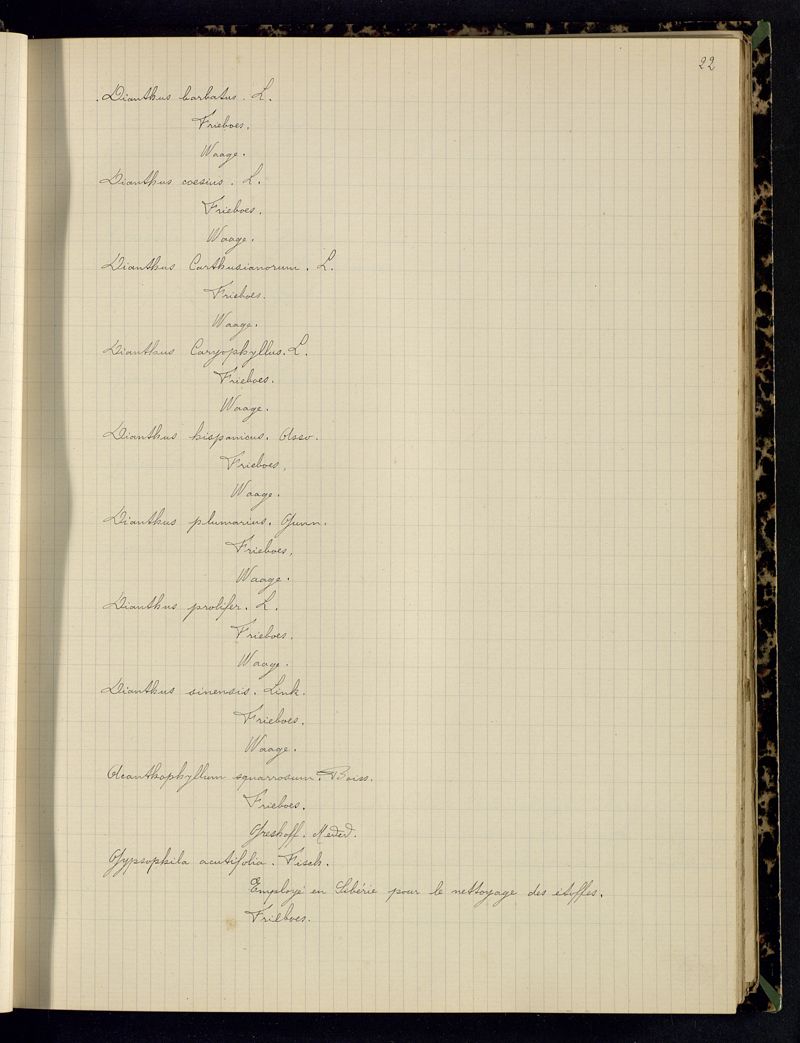 22
Dianthus barbatus. L.
Frieboes.
Waage.
Dianthus coesius. L.
Frieboes.
Waage.
Dianthus Carthusianorum. L.
Frieboes.
Waage.
Dianthus Caryophyllus. L.
Frieboes.
Waage.
Dianthus hispanicus. Asso.
Frieboes.
Waage.
Dianthus plumarius. Gunn.
Frieboes.
Waage.
Dianthus prolifer. L.
Frieboes.
Waage.
Dianthus sinensis. Link.
Frieboes.
Waage.
Acanthophyllum squarrosum. Boiss.
Frieboes.
Greshoff. Meded.
Gypsophila acutifolia. Fisch.
Employé en Sibérie pour le nettoyage des étoffes.
Frieboes.